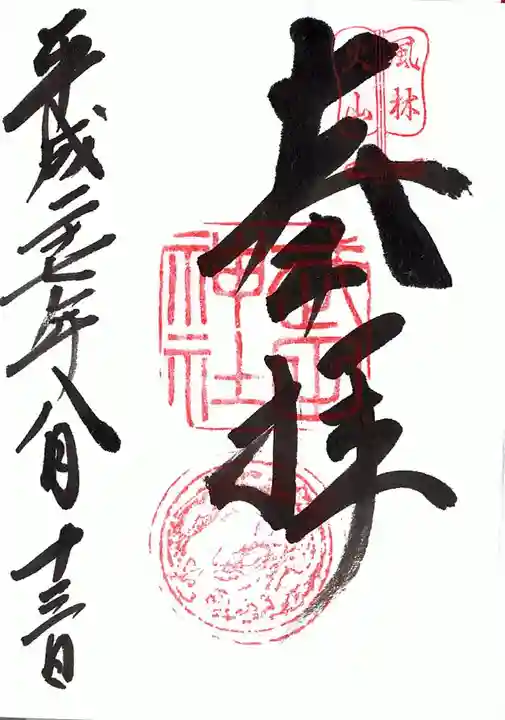 風林
火山
奉拝
武田
神社
平成二十七年八月十三日